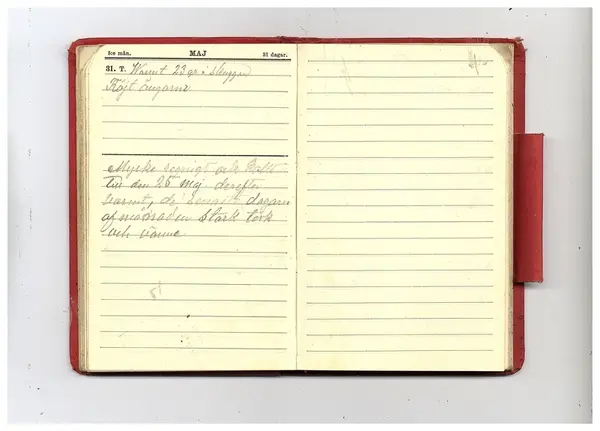 5te mån. MAJ 31 dagar.
31. T. Warmt 23 gr i skuggan
ängarne
Mycke regnigt och kallt
till den 25 Maj derefter
varmt, de senaste dagarne
af månaden Stark törk
och värme